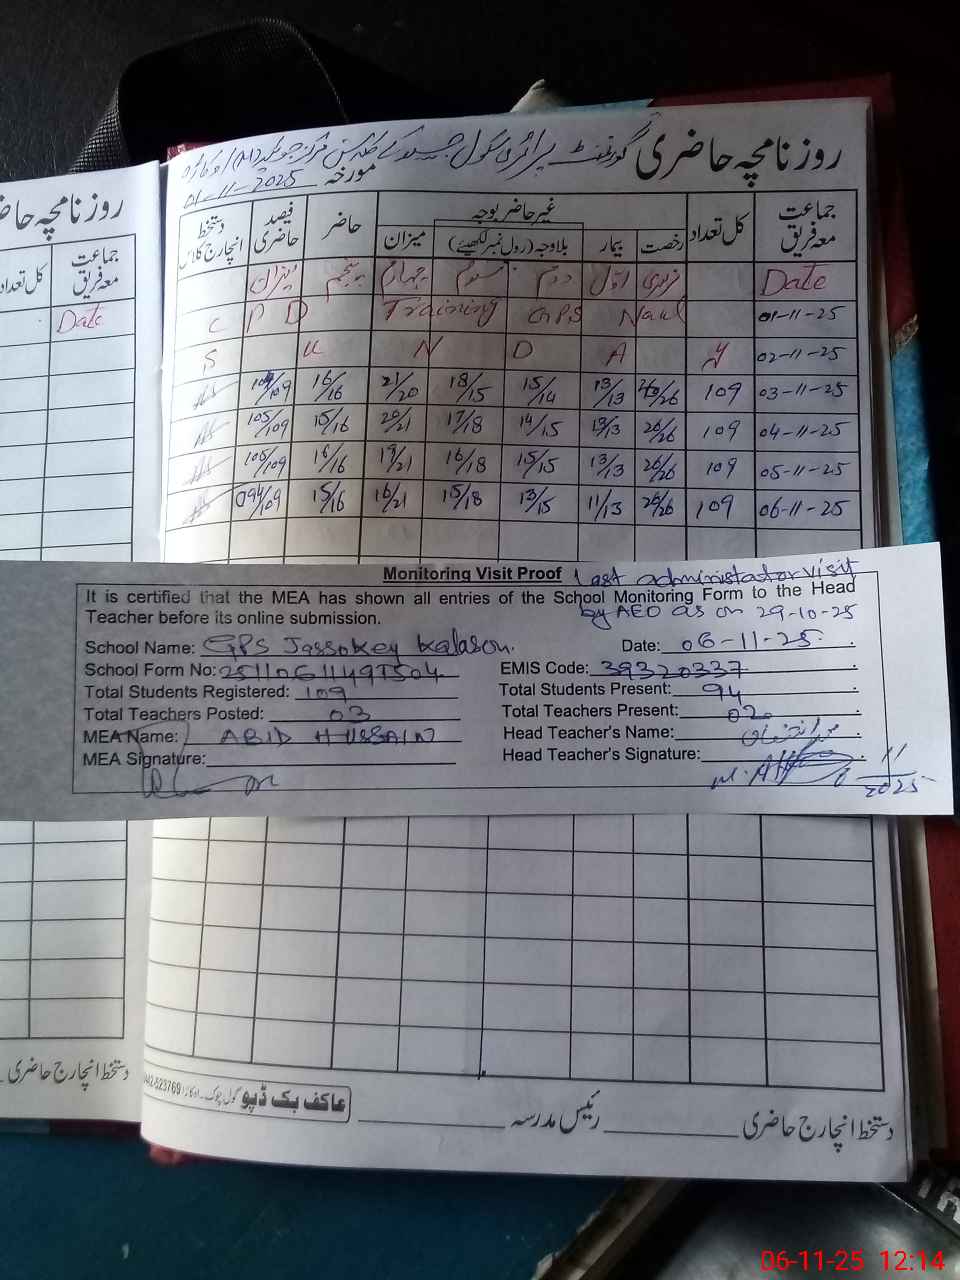 روزنامچہ حاضری گورنمنٹ پرائمری سکول
مورخہ 01-11-2025
جماعت معہ فریق کل تعداد غیر حاضر بوجہ حاضر فیصد حاضری دستخط انچارج کلاس
رخصت بیمار بلاوجہ (رول نمبر لکھیئے) میزان
Date نرسری اول دوم سوم چہارم پنجم میزان
C P D Training GPS Naul 01-11-25
S U N D A Y 02-11-25
/109 16/16 21/20 18/15 15/14 13/13 26/26 109 03-11-25
105/109 15/16 20/21 17/18 14/15 13/13 26/26 109 04-11-25
105/109 16/16 19/21 16/18 15/15 13/13 26/26 109 05-11-25
094/109 15/16 16/21 15/18 13/15 11/13 26/26 109 06-11-25
روزنامچہ حاض
جماعت معہ فریق کل تعداد
Date
Monitoring Visit Proof Last administator visit
by AEO as on 29-10-25
It is certified that the MEA has shown all entries of the School Monitoring Form to the Head
Teacher before its online submission.
School Name: GPS Jassokey Kalason. Date: 06-11-25.
School Form No: EMIS Code: 39320337
Total Students Registered: 109 Total Students Present: 94
Total Teachers Posted: 03 Total Teachers Present: 02
MEA Name: ABID HUSSAIN Head Teacher's Name:
MEA Signature: Head Teacher's Signature:
11
2025
دستخط انچارج حاضری رئیس مدرسہ
عاکف بک ڈپو گول چوک۔ اوکاڑا 0442-523769
دستخط انچارج حاضری
06-11-25 12:14